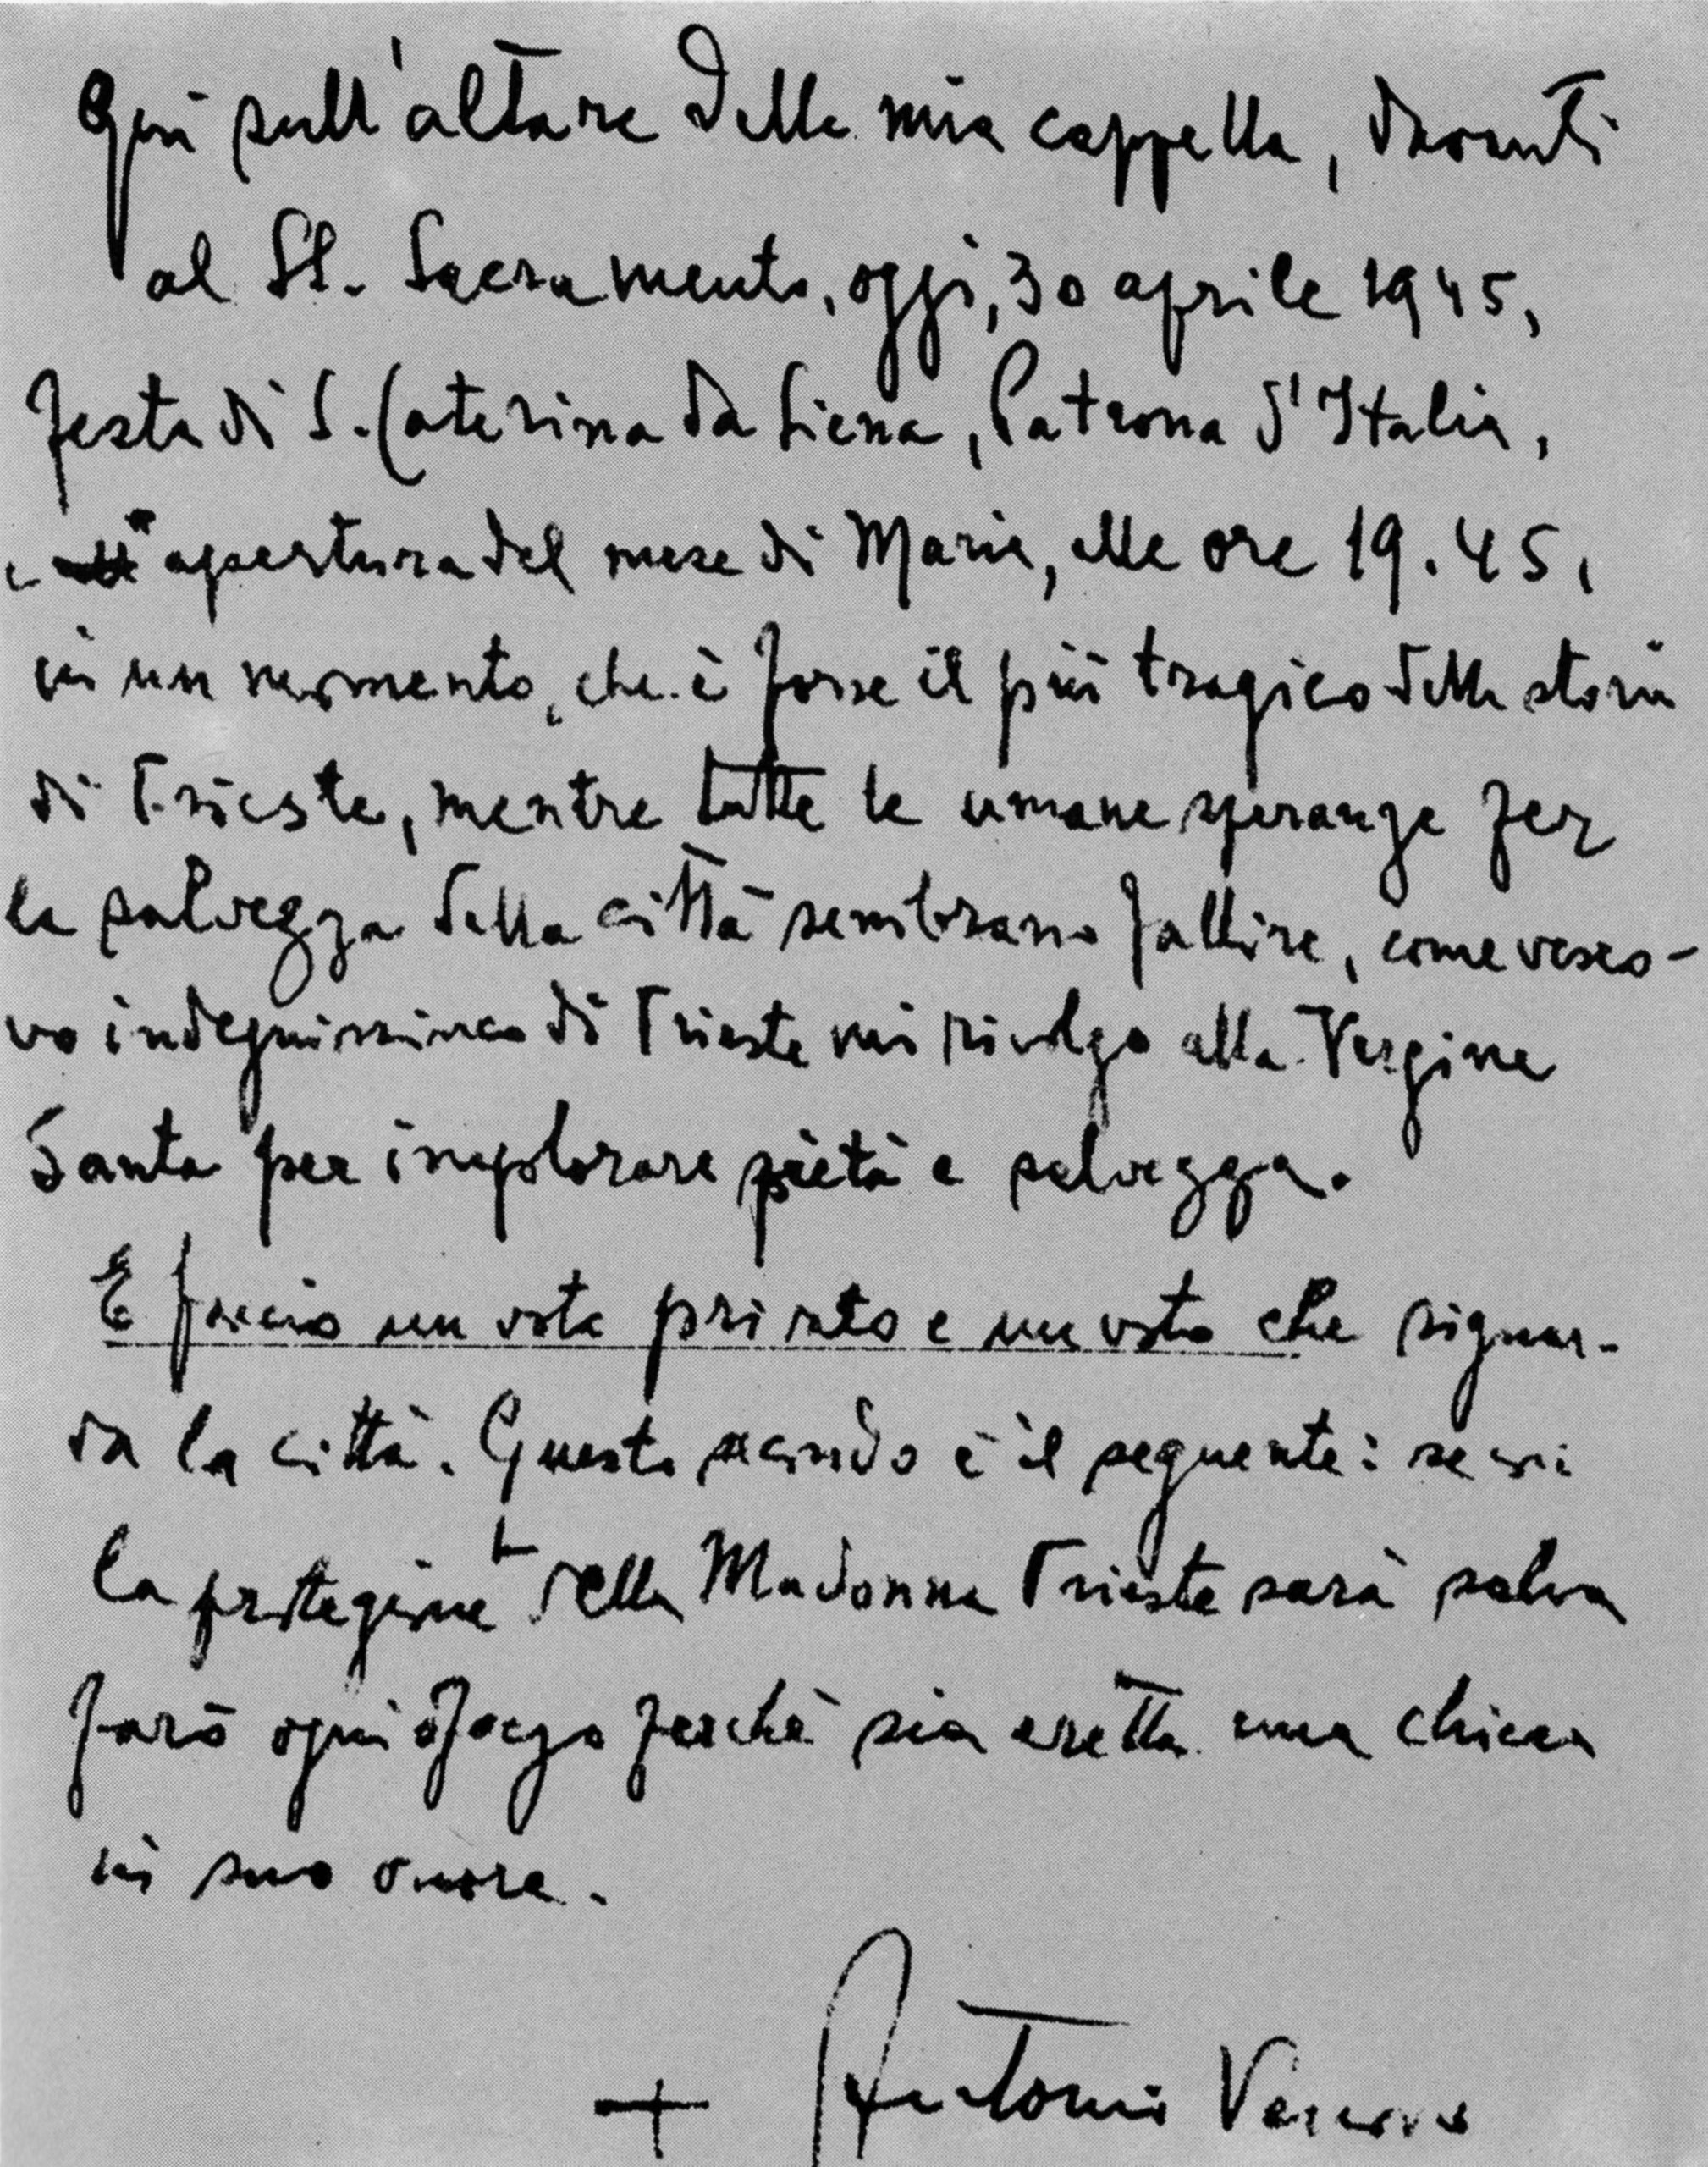 Qui sull'altare della mia cappella, davanti
al SS. Sacramento, oggi, 30 aprile 1945,
festa di S. Caterina da Siena, Patrona d'Italia,
e apertura del mese di Maria, alle ore 19.45,
in un momento, che è forse il più tragico della storia
di Trieste, mentre tutte le umane speranze per
la salvezza della città sembrano fallire, come vesco-
vo indegnissimo di Trieste mi rivolgo alla Vergine
Santa per implorare pietà e salvezza.
E faccio un voto privato e un voto che riguar-
da la città. Questo secondo è il seguente: se con
la protezione della Madonna Trieste sarà salva
farò ogni sforzo perchè sia eretta una chiesa
in suo onore.
+ Antonio Vescovo